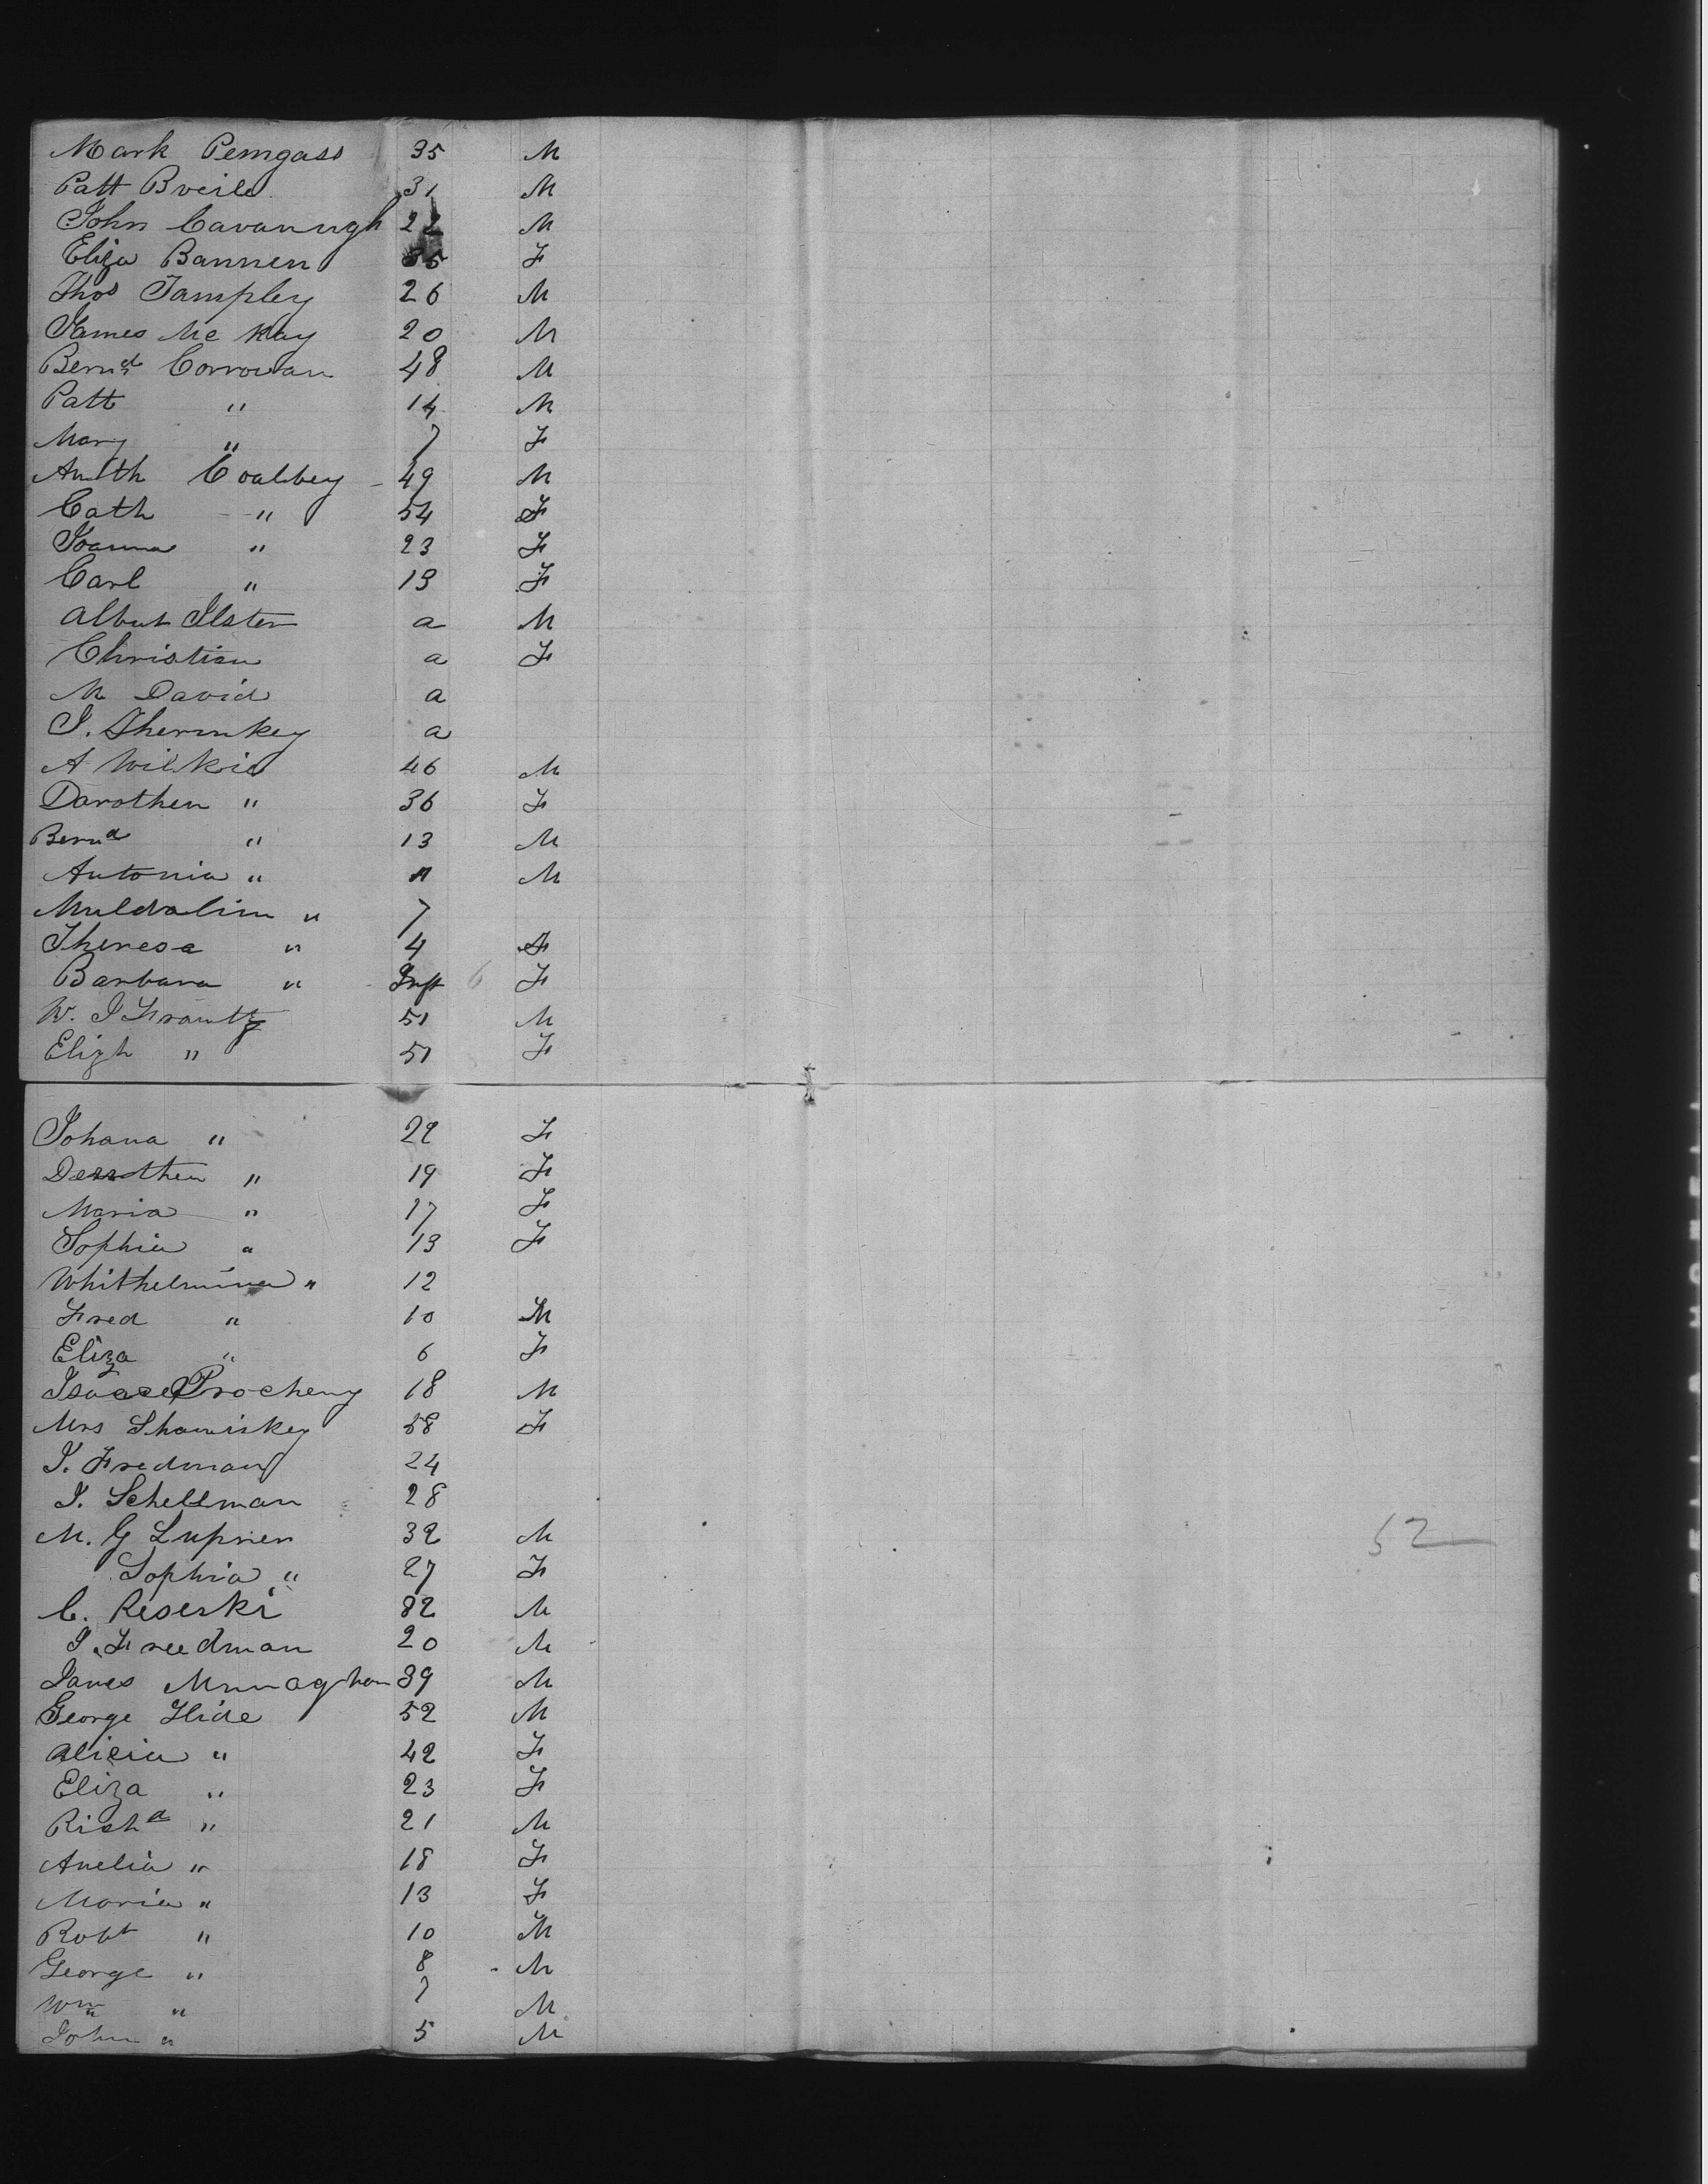 Mark Pemgass 35 M
Patt Bveile 31 M
John Cavanugh 22 M
Eliza Bannen 35 F
Thos Tampley 26 M
James Mc Kay 20 M
Bernd Corrowan 48 M
Patt " 14 M
Mary " 7 F
Coalbey 49 M
Cath " 54 F
Joanna " 23 F
Carl " 13 F
Albert Ilster a M
Christian a F
M David a
I. Shermkey a
A Wilkie 46 M
Darothen " 36 F
Bernd " 13 M
Antonia " 11 M
Muldalim " 7
Theresa " 4 F
Barbara " Inft 6 F
W. I Frantz 51 M
Elizh " 51 F
Johana " 22 F
Derothen " 19 F
Maria " 17 F
Sophia " 13 F
Whithelmina " 12
Fred " 10 M
Eliza " 6 F
Isaac Procheny 18 M
Mrs Shawiskey 58 F
I. Fredman 24
I. Schellman 28
M. G Lupnen 32 M
Sophia " 27 F
C. Reserki 82 M
I. Freedman 20 M
James Munaghan 39 M
George Hide 52 M
52
Alicia " 42 F
Eliza " 23 F
Richd " 21 M
Amelia " 18 F
Maria " 13 F
Robt " 10 M
George " 8 M
Wm " 7 M
John " 5 M